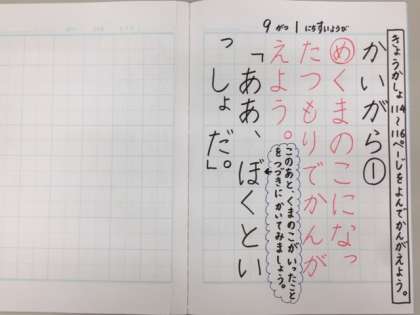 きょうかしょ114～116ページをよんでかんがえよう。
9がつ1にちすいようび
かいがら①
めくまのこになっ
たつもりでかんが
えよう。
このあと、くまのこがいったこと
をつづきにかいてみましょう。
「ああ、ぼくとい
っしょだ。」